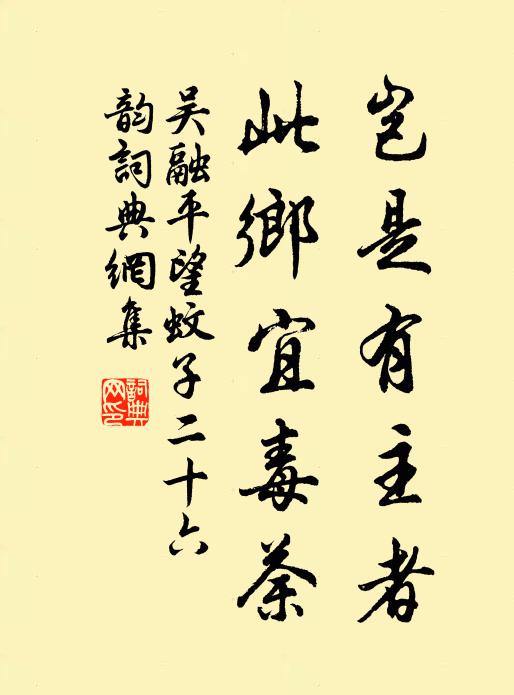 豈是有主者
此鄉宜毒荼
吳融平望蚊子二十六
韵詞典網集
詞典
网印